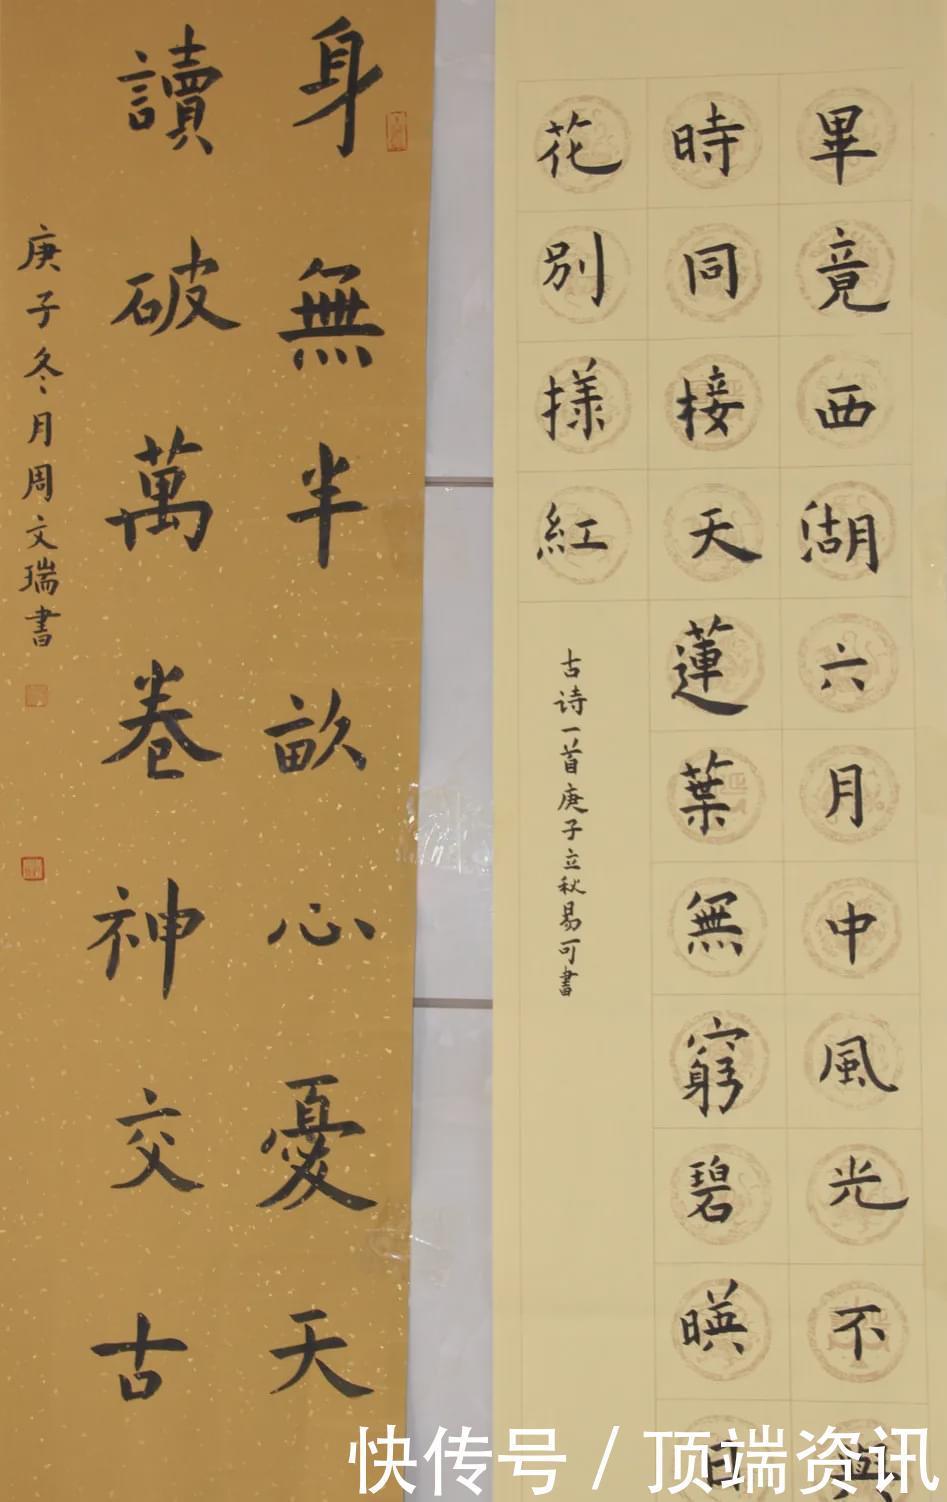 畢竟西湖六月中風光不與
時同接天蓮葉無窮碧暎日
花別樣紅
古诗一首庚子立秋易可書
身無半畝心憂天
讀破萬卷神交古
庚子冬月周文瑞書
快传号 / 顶端资讯